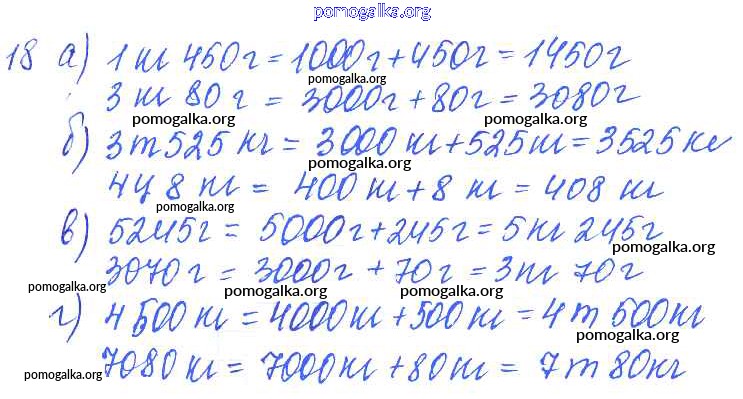 pomogalka.org
18 а) 1 кг 450 г = 1000 г + 450 г = 1450 г
pomogalka.org
3 кг 80 г = 3000 г + 80 г = 3080 г
pomogalka.org pomogalka.org
б) 3 т 525 кг = 3000 кг + 525 кг = 3525 кг
pomogalka.org
4 ц 8 кг = 400 кг + 8 кг = 408 кг
pomogalka.org
в) 5245 г = 5000 г + 245 г = 5 кг 245 г
pomogalka.org
3070 г = 3000 г + 70 г = 3 кг 70 г
pomogalka.org pomogalka.org pomogalka.org
г) 4 500 кг = 4000 кг + 500 кг = 4 т 500 кг
pomogalka.org
7080 кг = 7000 кг + 80 кг = 7 т 80 кг
pomogalka.org